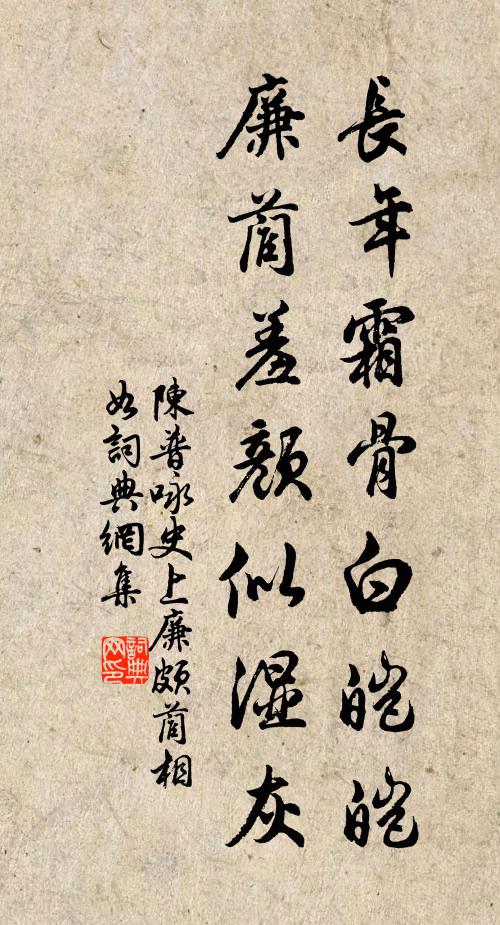 長年霜骨白皚皚
廉藺羞顔似濕灰
陳普咏史上廉頗藺相
如詞典網集
詞典
网印